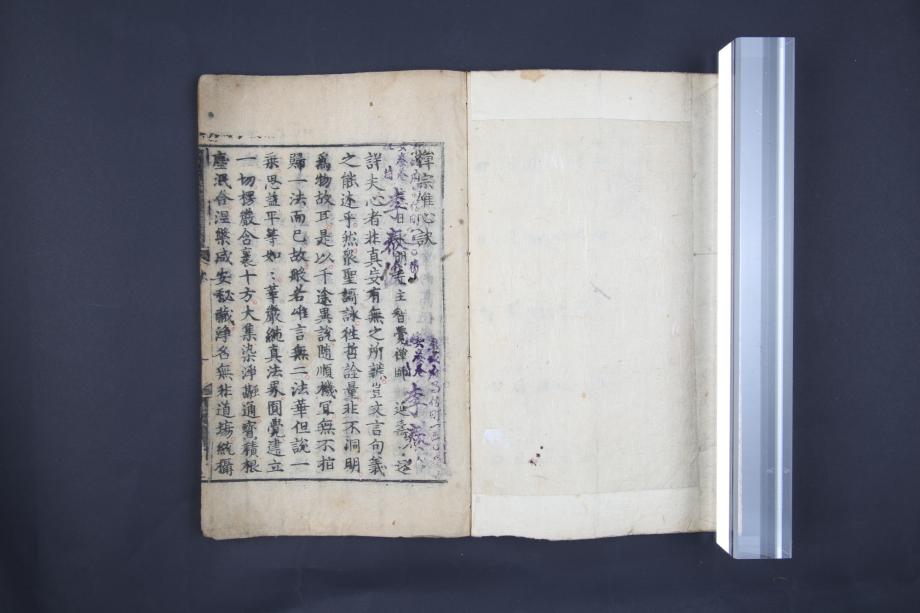 禪宗唯心訣
主智覺禪師 延壽 述
詳夫心者非真妄有無之所辯豈文言句義
之能述乎然衆聖謌詠徃哲詮量非不洞明
爲物故耳是以千途異說隨順機宜無不指
歸一法而已故般若唯言無二法華但說一
乘思益平等如如華嚴純真法界圓覺建立
一切楞嚴含裹十方大集染淨融通寶積根
塵泯合涅槃咸安秘藏淨名無非道塲統攝
李
李